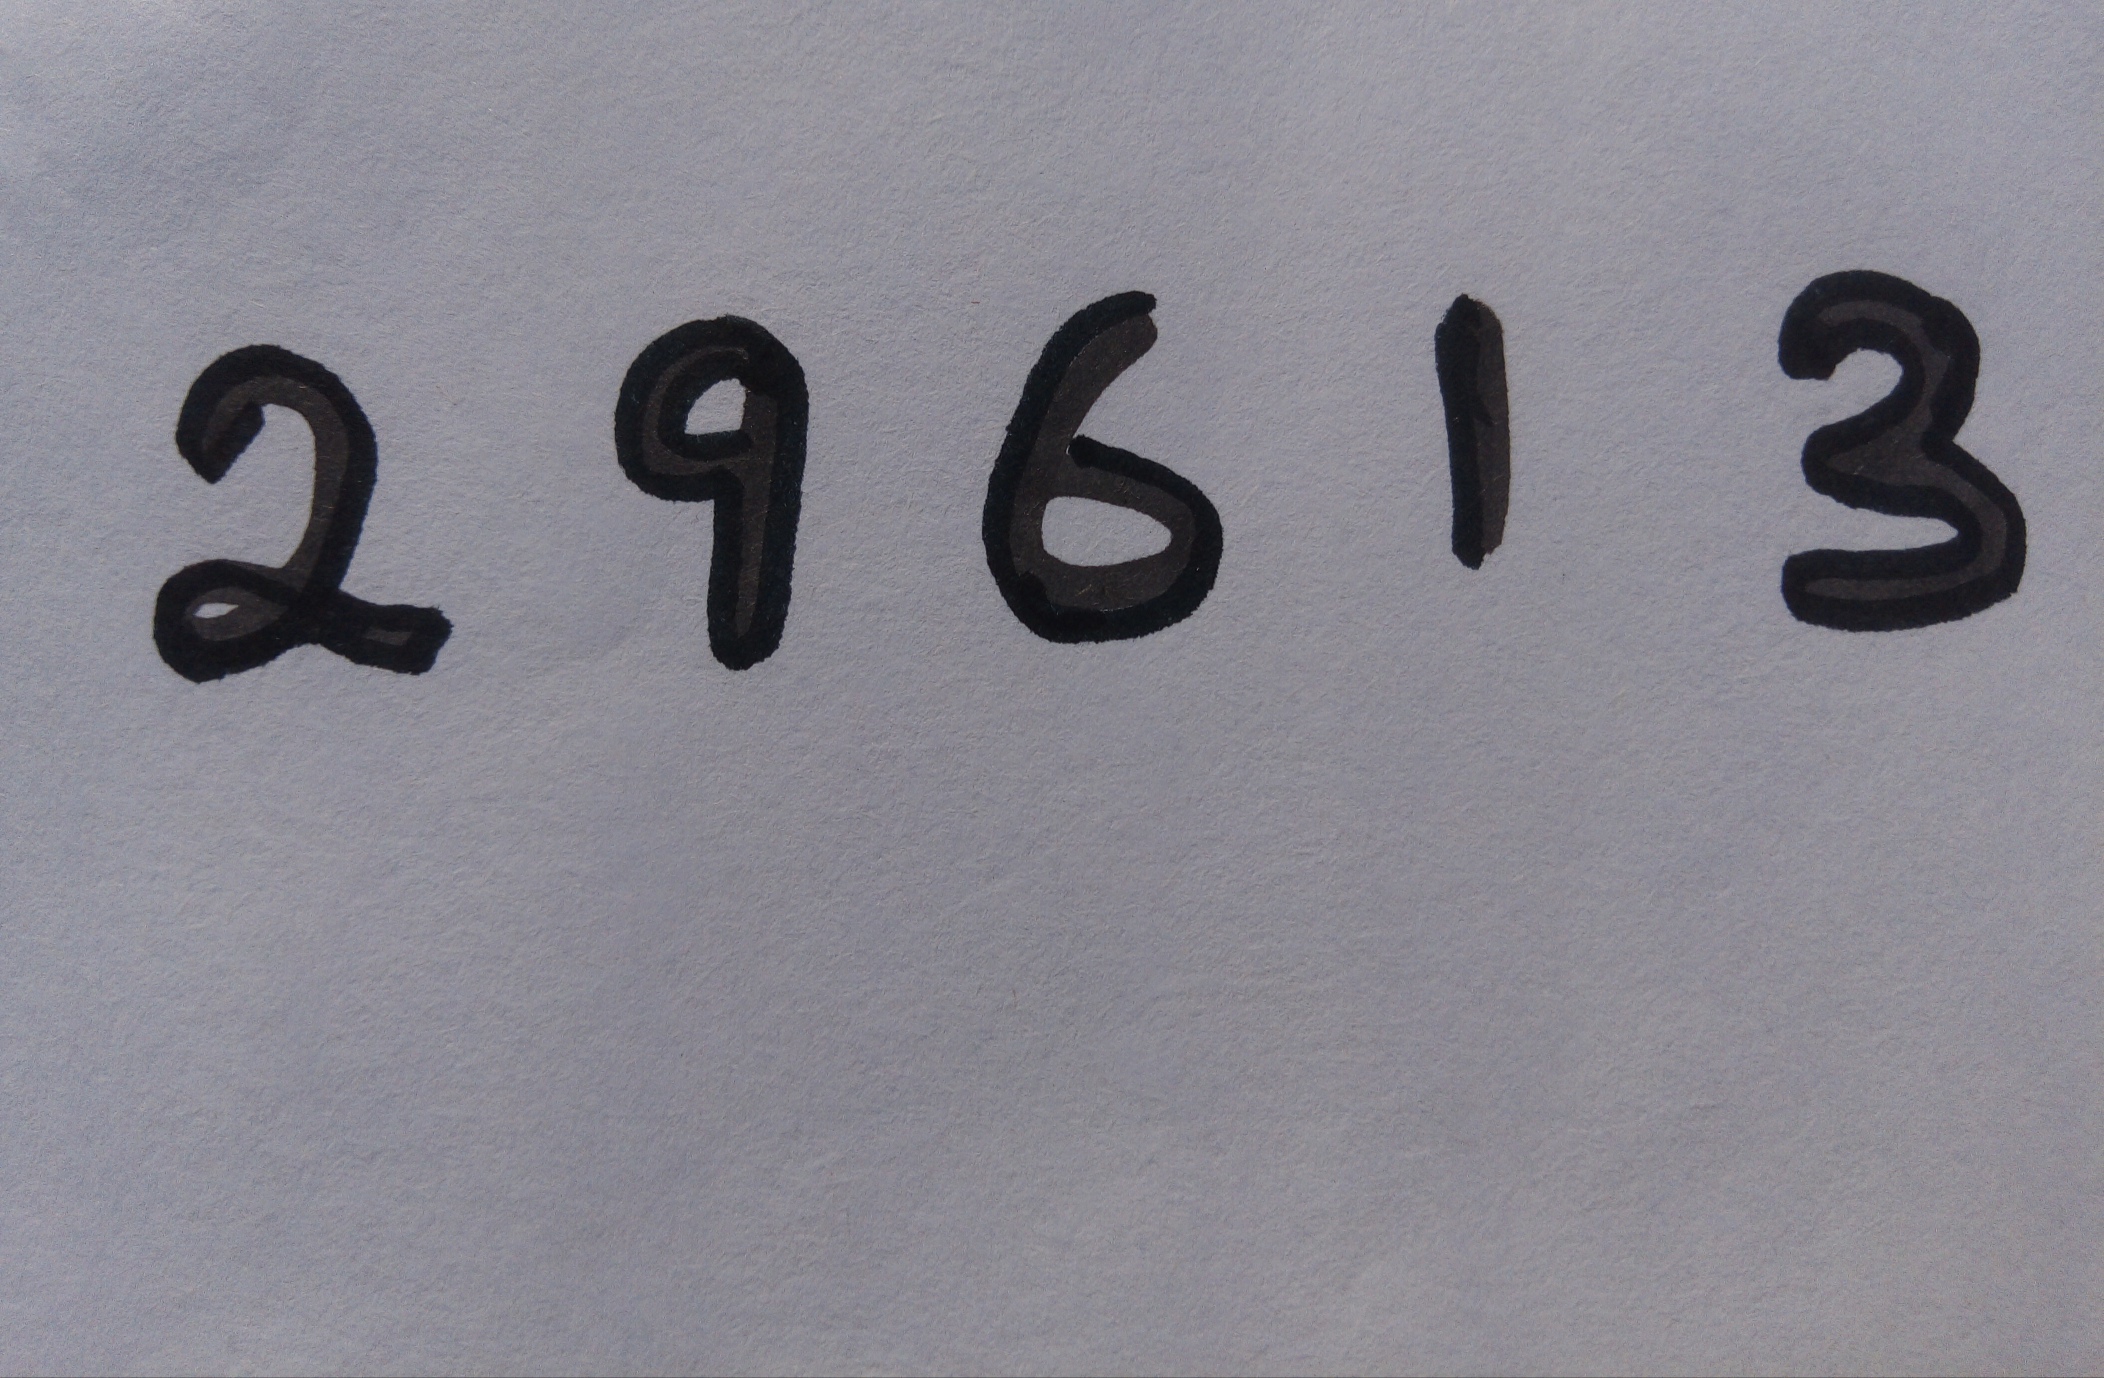 2 9 6 1 3